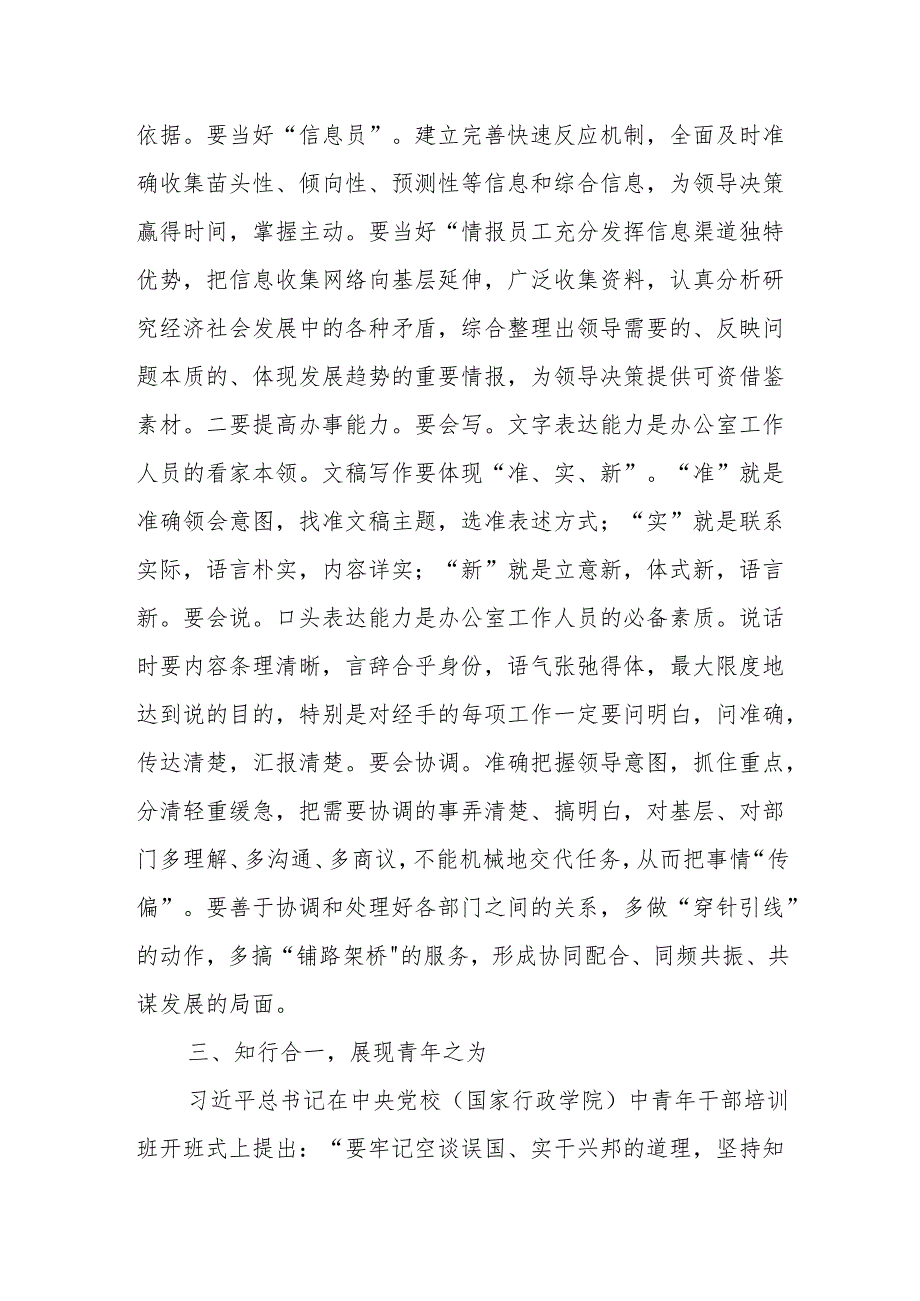 依据。要当好“信息员”。建立完善快速反应机制，全面及时准
确收集苗头性、倾向性、预测性等信息和综合信息，为领导决策
赢得时间，掌握主动。要当好“情报员工充分发挥信息渠道独特
优势，把信息收集网络向基层延伸，广泛收集资料，认真分析研
究经济社会发展中的各种矛盾，综合整理出领导需要的、反映问
题本质的、体现发展趋势的重要情报，为领导决策提供可资借鉴
素材。二要提高办事能力。要会写。文字表达能力是办公室工作
人员的看家本领。文稿写作要体现“准、实、新”。“准”就是
准确领会意图，找准文稿主题，选准表述方式；“实”就是联系
实际，语言朴实，内容详实；“新”就是立意新，体式新，语言
新。要会说。口头表达能力是办公室工作人员的必备素质。说话
时要内容条理清晰，言辞合乎身份，语气张弛得体，最大限度地
达到说的目的，特别是对经手的每项工作一定要问明白，问准确，
传达清楚，汇报清楚。要会协调。准确把握领导意图，抓住重点，
分清轻重缓急，把需要协调的事弄清楚、搞明白，对基层、对部
门多理解、多沟通、多商议，不能机械地交代任务，从而把事情“传
偏”。要善于协调和处理好各部门之间的关系，多做“穿针引线”
的动作，多搞“铺路架桥"的服务，形成协同配合、同频共振、共
谋发展的局面。
三、知行合一，展现青年之为
习近平总书记在中央党校（国家行政学院）中青年干部培训
班开班式上提出：“要牢记空谈误国、实干兴邦的道理，坚持知